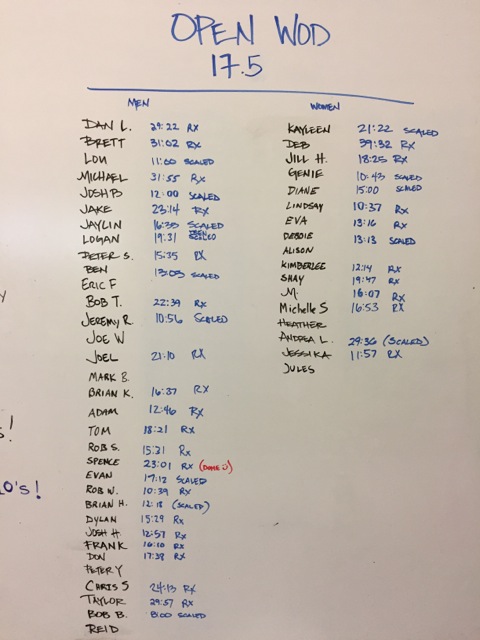 OPEN WOD
17.5
MEN
DAN L. 29:22 RX
BRETT 31:02 RX
LOU 11:00 SCALED
MICHAEL 31:55 RX
JOSH B 12:00 SCALED
JAKE 23:14 RX
JAYLIN 16:35 SCALED
LOGAN 19:31
PETER S. 15:35 RX
BEN 13:03 SCALED
ERIC F
BOB T. 22:39 RX
JEREMY R. 10:56 SCALED
JOE W
JOEL 21:10 RX
MARK B.
BRIAN K. 16:37 RX
ADAM 12:46 RX
TOM 18:21 RX
ROB S. 15:21 RX
SPENCE 23:01 RX
EVAN 17:12 SCALED
ROB W. 10:39 RX
BRIAN H. 12:18 (SCALED)
DYLAN 15:29 RX
JOSH H. 12:57 RX
FRANK 16:10 RX
DON 17:38 RX
PETER Y
CHRIS S 24:13 RX
TAYLOR 29:57 RX
BOB B. 8:00 SCALED
REID
WOMEN
KAYLEEN 21:22 SCALED
DEB 39:32 RX
JILL H. 18:25 RX
GENIE 10:43 SCALED
DIANE 15:00 SCALED
LINDSAY 10:37 RX
EVA 13:16 RX
DEBBIE 13:13 SCALED
ALISON
KIMBERLEE 12:14 RX
SHAY 19:47 RX
M. 16:07 RX
Michelle S 16:53 RX
HEATHER
ANDREA L. 29:36 (SCALED)
JESSIKA 11:57 RX
JULES
!
0's!